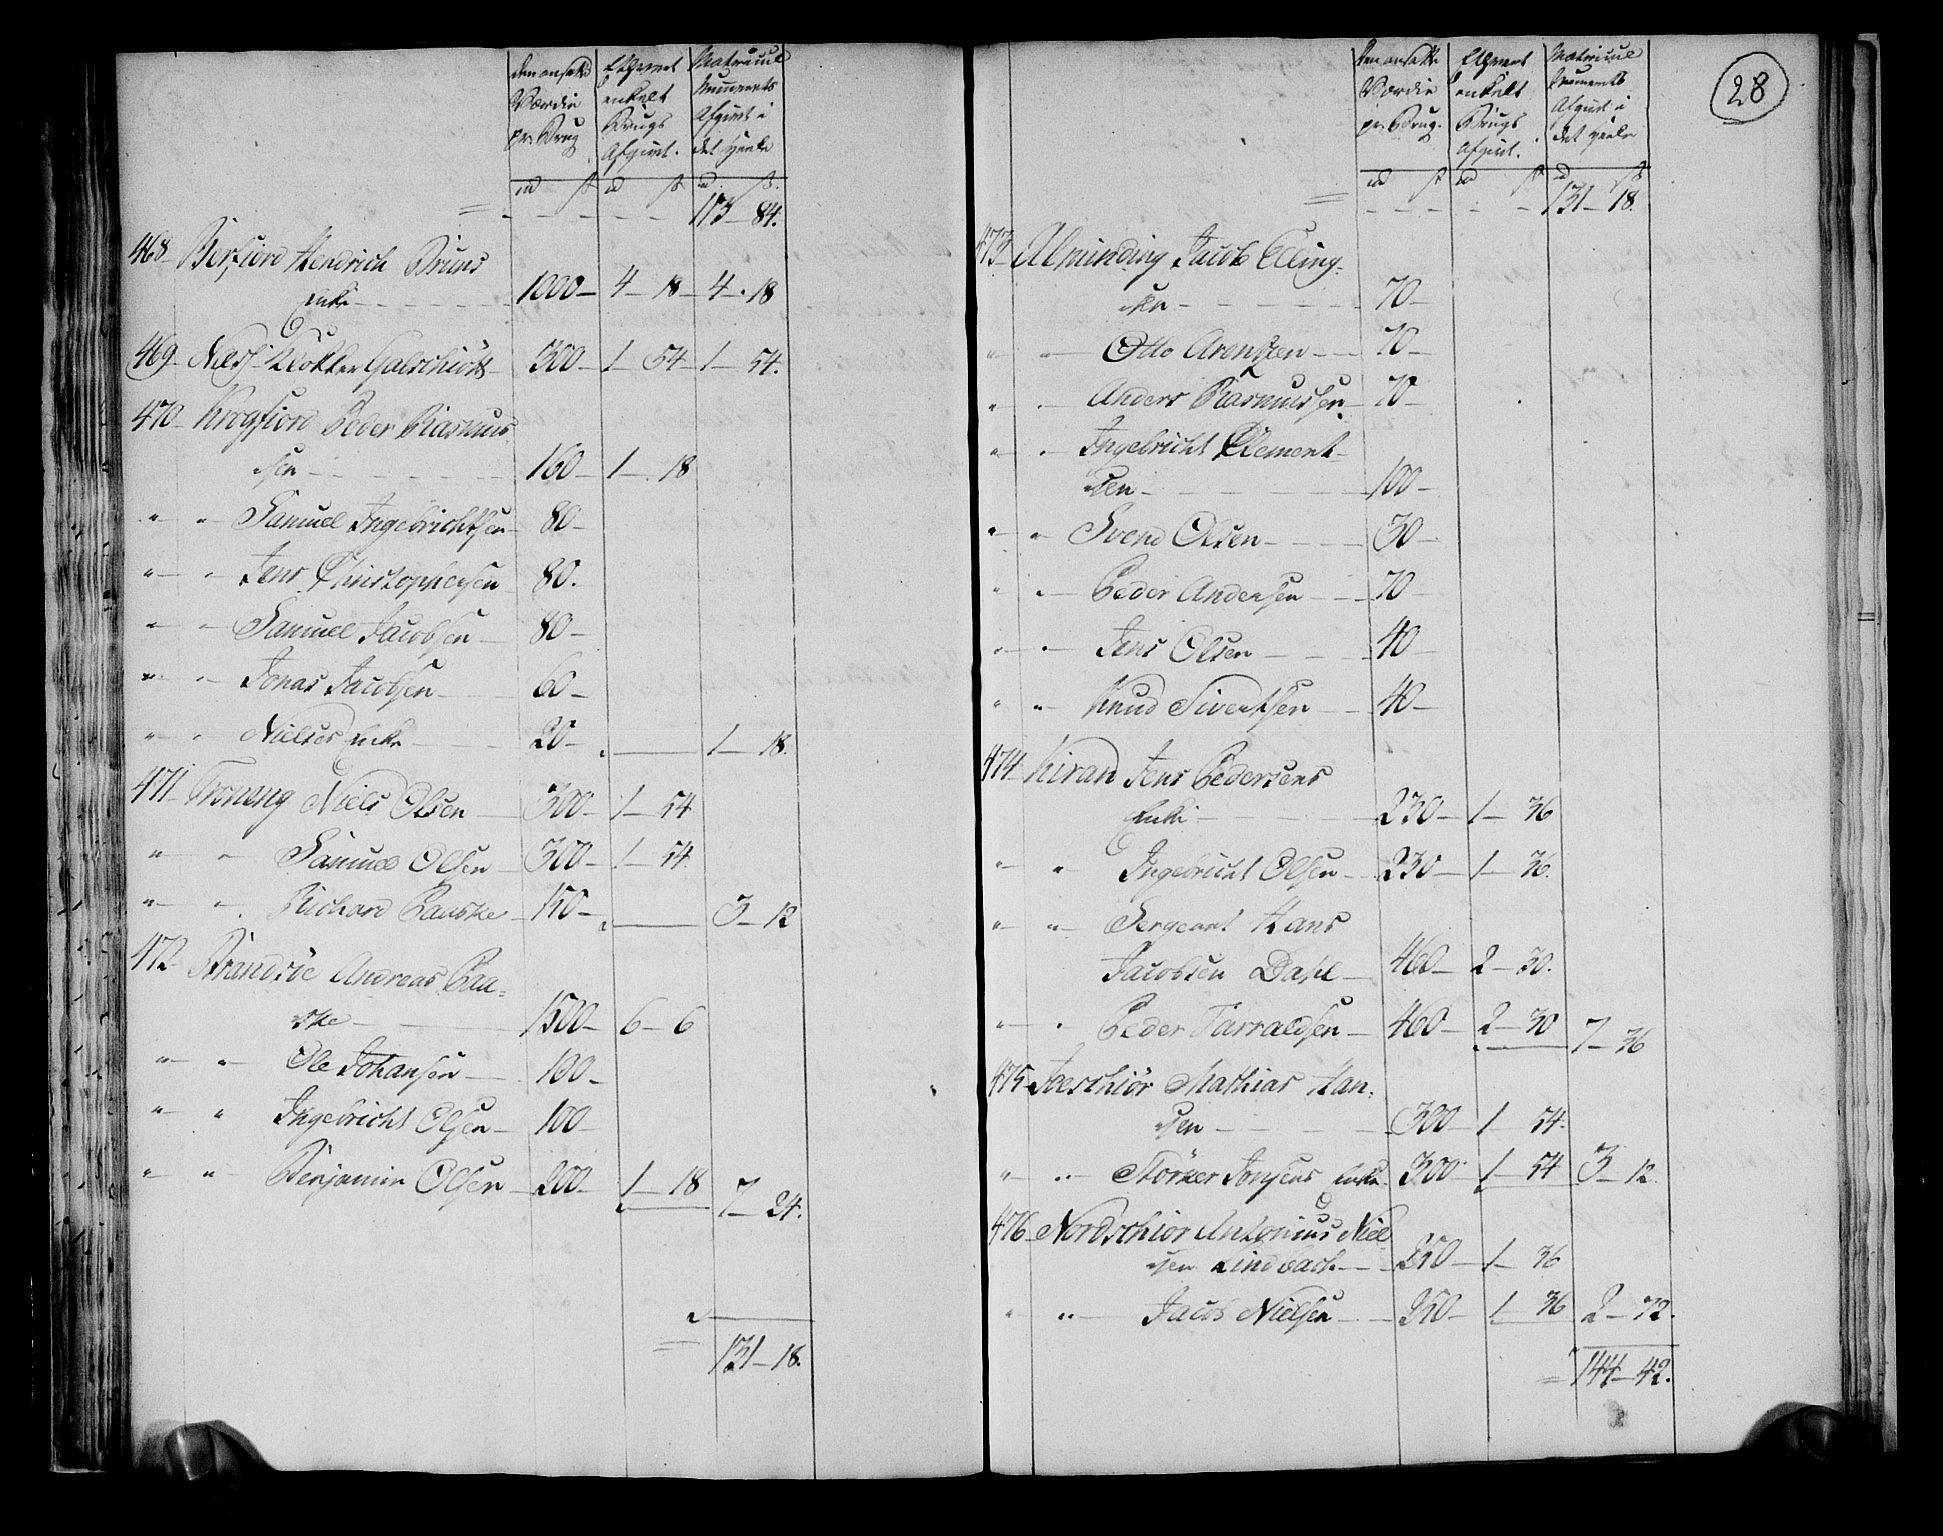 den ansatte Værdie pr. Brug | Ethvert enkelt Brugs Afgivt. | Matricul Numerets Afgivt i det heele
rd ß | rd ß | rd ß
= - - - - - 113 - 84.
468 - Berfiord Hendrich Bruns
Enke - - - 1000 - 4 - 18 - 4 - 18
469 - Nils Klokker Galschiøtt - 300 - 1 - 54 - 1 - 54.
470 - Krogfiord Peder Rasmus
sen - - - 160 - 1 - 18
" " Samuel Ingebrichtsen - 80 -
" " Jens Christophersen - 80.
" " Samuel Jacobsen - 80 -
" " Jonas Jacobsen - 60 -
" " Nielses Enke - 20 - 1 - 18.
471 - Troneng Niels Olsen - 300 - 1 - 54
" " Samuel Olsen - 300 - 1 - 54
" " Richard Baaske - 150 - 3 - 12
472 - Strandsøe Andreas Baa-
ske - 1500 - 6 - 6
" " Ole Johansen - 100 -
" " Ingebricht Olsen - 100 -
" " Benjamin Olsen - 200 - 1 - 18 7 - 24.
= 131 - 18.
28
den ansatte Værdie pr. Brug. | Ethvert enkelt Brugs Afgivt. | Matricul Numerets Afgivt i det heele
rd ß | rd ß | rd ß
= - - - - - 131 - 18.
473 - Alminding Jacob Elling-
sen - - - 70 -
" " Otto Arentzen - - 70 -
" " Anders Rasmussen - 70 -
" " Ingebricht Clement-
sen - - - 100 -
" " Svend Olsen - - - 30 -
" " Peder Andersen - - 70 -
" " Jens Olsen - - 40 -
" " Knud Sivertsen - - 40 -
474 - Kiran Jens Pedersens
Enke - - - 230 - 1 - 36
" " Ingebricht Olsen - 230 - 1 - 36.
" " Sergeant Hans
Jacobsen Dahl - 460 - 2 - 30.
" " Peder Tarraldsen - 460 - 2 - 30 7 - 36
475 - Faeschiør Mathias Han-
sen - - - 300 - 1 - 54.
" " Størker Jonsens Enke 300 - 1 - 54 3 - 12.
476 - Nordschiør Antonius Niel
sen Lindbach - - 250 - 1 - 36
" " Jacob Nielsen - - 250 - 1 - 36 2 - 72.
= 144 - 42.